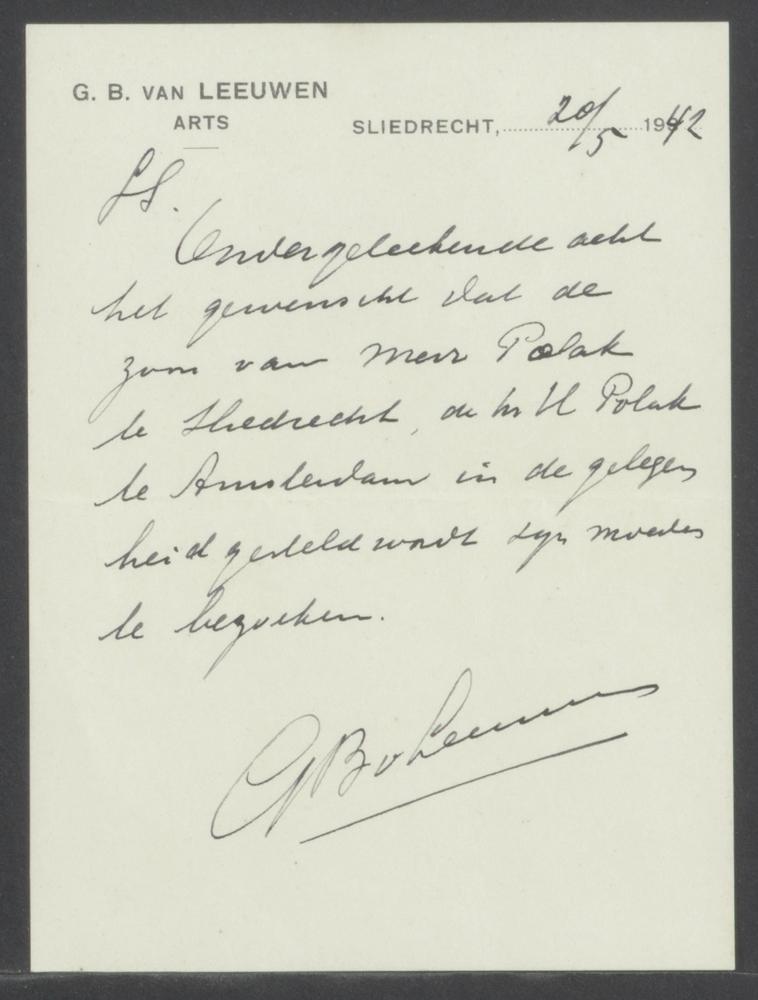 G. B. VAN LEEUWEN
ARTS
SLIEDRECHT, 20/5 1942
LS.
Ondergeteekende acht
het gewenscht dat de
zoon van Mevr Polak
te Sliedrecht, de hr H Polak
te Amsterdam in de gelegen
heid gesteld wordt zijn moeder
te bezoeken.
GBvLeeuwen